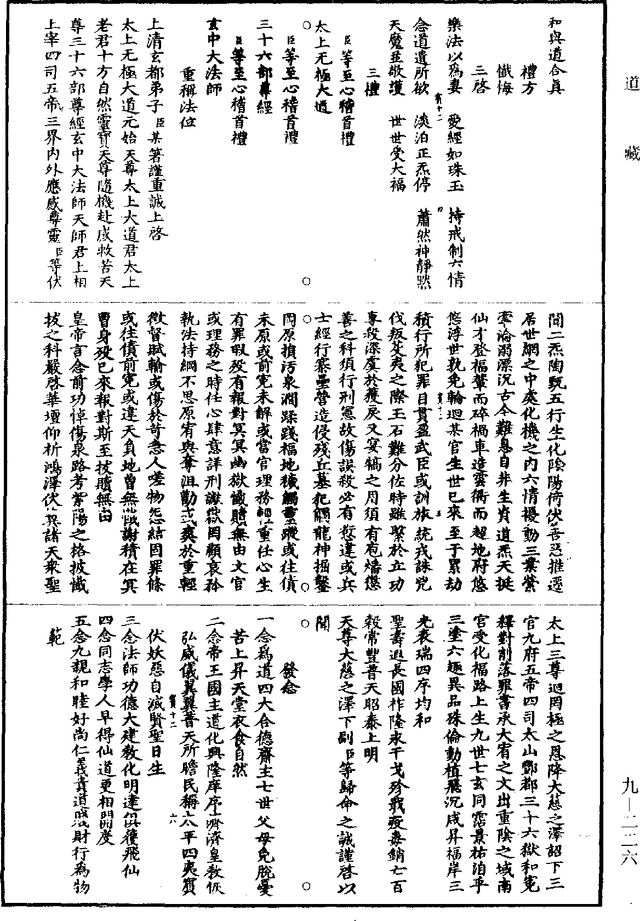 道藏
和與道合真
禮方
懺悔
三啓
樂法以為妻 愛經如珠玉 持戒制六情
念道遣所欲 淡泊正炁停 蕭然神靜默
天魔並敬護 世世受大福
三禮
臣等至心稽首禮
太上无極大道
臣等至心稽首禮
三十六部尊經
臣等至心稽首禮
玄中大法師
重稱法位
上清玄都弟子臣某等謹重誠上啓
太上无極大道元始天尊太上大道君太上
老君十方自然靈寶天尊隨機赴感救苦天
尊三十六部尊經玄中大法師天師君上相
上宰四司五帝三界內外應感尊靈臣等伏
聞二炁陶甄五行生化陰陽倚伏吉惡推遷
居世網之中處化機之內六情擾動三業縈
牽淪溺漂沉古今難息自非生資道炁天挺
仙才登福輦而碎禍車造雲衢而超地府悠
悠浮世孰免輪迴某官生世已來至于累劫
積行所犯罪目貫盈武臣或訓旅統戎誅兇
伐叛芟夷之際玉石難分佐時雖繫於立功
專殺深虞於獲戾又宴犒之用須有庖燔懲
善之科須行刑憲故傷誤殺必有愆違或兵
士經行寨壘營造侵殘丘墓犯觸龍神掘鑿
岡原損污泉澗蹂踐福地穢觸靈蹤或往債
未原或前冤未解或當官理務輕重任心生
有罪瑕没有報對冥冥幽獄懺贖無由文官
或理務之時任心肆意詳刑讞獄罔顧哀矜
執法持綱不思原宥與奪沮勸或爽於重輕
徵督賦輸或傷於苛急人嗟物怨結因罪條
或往債前冤或違天負地曾無懺謝積在冥
曹身没已來報對斯至拔贖無由
皇帝言念前功悼傷泉路考紫陽之格披懺
拔之科嚴啓華壇仰祈鴻澤伏冀諸天衆聖
太上三尊迴罔極之恩降大慈之澤詔下三
官九府五帝四司太山酆都三十六獄和冤
釋對削落罪書承大宥之文出重陰之域南
宮受化福路上生九世七玄同霑景祐洎乎
三塗六趣異品殊倫動植飛沉咸昇福岸三
光表瑞四序均和
聖壽遐長國祚隆永干戈殄戢疫毒銷亡百
穀常豐普天昭泰上明
天尊大慈之澤下副臣等歸命之誠謹啓以
聞
發念
一念為道四大合德齋主七世父母免脫憂
苦上昇天堂衣食自然
二念帝王國主道化興隆庠序濟濟皇教恢
弘威儀翼翼普天所瞻民稱太平四夷賓
伏妖惡自滅賢聖日生
三念法師功德大建教化明達俱獲飛仙
四念同志學人早得仙道更相開度
五念九親和睦好尚仁義貴道賤財行為物
範
九—二二六